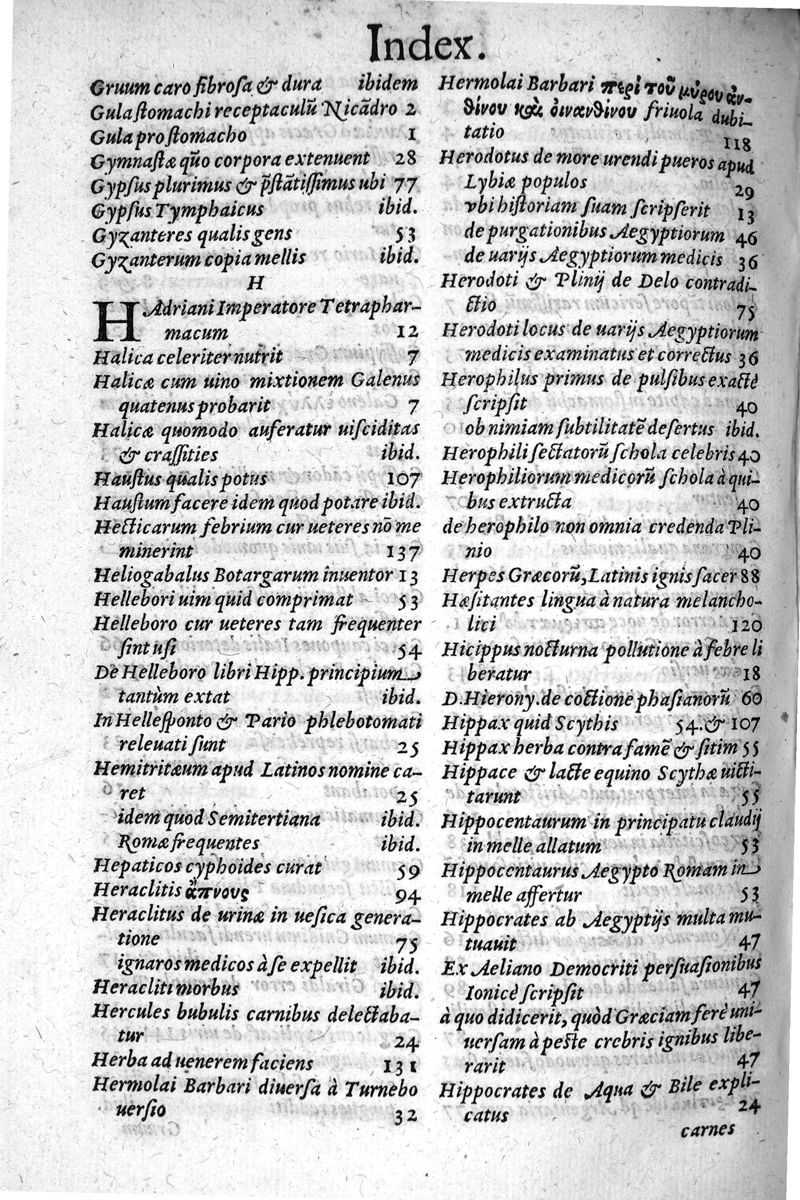 Index.
Gruum caro fibrosa & dura ibidem
Gula stomachi receptaculū Nicādro 2
Gula pro stomacho 1
Gymnastæ quo corpora extenuent 28
Gypsus plurimus & p̄stātissimus ubi 77
Gypsus Tymphaicus ibid.
Gyzanteres qualis gens 53
Gyzanterum copia mellis ibid.
H
HAdriani Imperatore Tetraphar-
macum 12
Halica celeriter nutrit 7
Halicæ cum uino mixtionem Galenus
quatenus probarit 7
Halicæ quomodo auferatur uisciditas
& crassities ibid.
Haustus qualis potus 107
Haustum facere idem quod potare ibid.
Hecticarum febrium cur ueteres nō me
minerint 137
Heliogabalus Botargarum inuentor 13
Hellebori uim quid comprimat 53
Helleboro cur ueteres tam frequenter
sint usi 54
De Helleboro libri Hipp. principium
tantùm extat ibid.
In Hellesponto & Pario phlebotomati
releuati sunt 25
Hemitritæum apud Latinos nomine ca-
ret 25
idem quod Semitertiana ibid.
Romæ frequentes ibid.
Hepaticos cyphoides curat 59
Heraclitis ἄπνους 94
Heraclitus de urinæ in uesica genera-
tione 75
ignaros medicos à se expellit ibid.
Heracliti morbus ibid.
Hercules bubulis carnibus delectaba-
tur 24
Herba ad uenerem faciens 131
Hermolai Barbari diuersa à Turnebo
uersio 32
Hermolai Barbari περὶ τοῦ μύρου ἀν-
θίνου καὶ οἰνανθίνου friuola dubi-
tatio 118
Herodotus de more urendi pueros apud
Lybiæ populos 29
vbi historiam suam scripserit 13
de purgationibus Aegyptiorum 46
de uarijs Aegyptiorum medicis 36
Herodoti & Plinij de Delo contradi-
ctio 75
Herodoti locus de uarijs Aegyptiorum
medicis examinatus et correctus 36
Herophilus primus de pulsibus exactè
scripsit 40
ob nimiam subtilitatē desertus ibid.
Herophili sectatorū schola celebris 40
Herophiliorum medicorū schola à qui-
bus extructa 40
de herophilo non omnia credenda Pli-
nio 40
Herpes Græcorū, Latinis ignis sacer 88
Hæsitantes lingua à natura melancho-
lici 120
Hicippus nocturna pollutione à febre li
beratur 18
D. Hierony. de coctione phasianorū 60
Hippax quid Scythis 54. & 107
Hippax herba contra famē & sitim 55
Hippace & lacte equino Scythæ uicti-
tarunt 55
Hippocentaurum in principatu claudij
in melle allatum 53
Hippocentaurus Aegypto Romam in
melle affertur 53
Hippocrates ab Aegyptijs multa mu-
tuauit 47
Ex Aeliano Democriti persuasionibus
Ionicè scripsit 47
à quo didicerit, quòd Græciam ferè uni-
uersam à peste crebris ignibus libe-
rarit 47
Hippocrates de Aqua & Bile expli-
catus 24
carnes